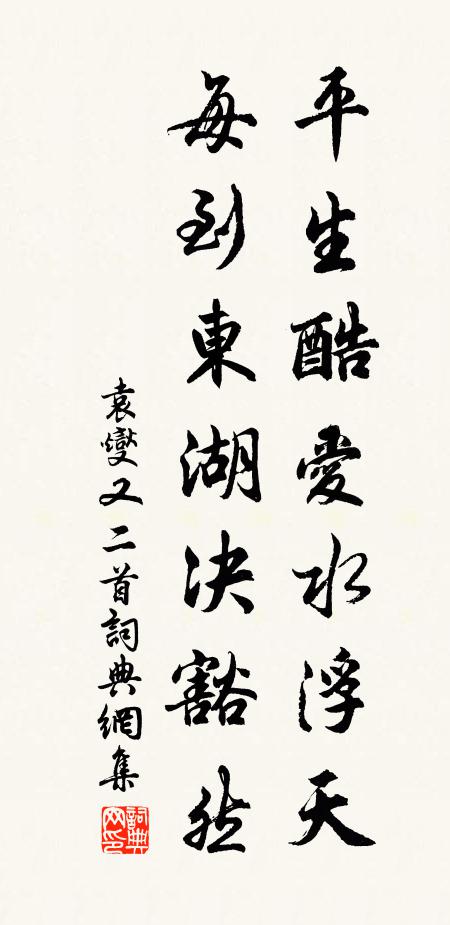 平生酷愛水浮天
每到東湖決豁然
袁燮又二首詞典網集
詞典网印